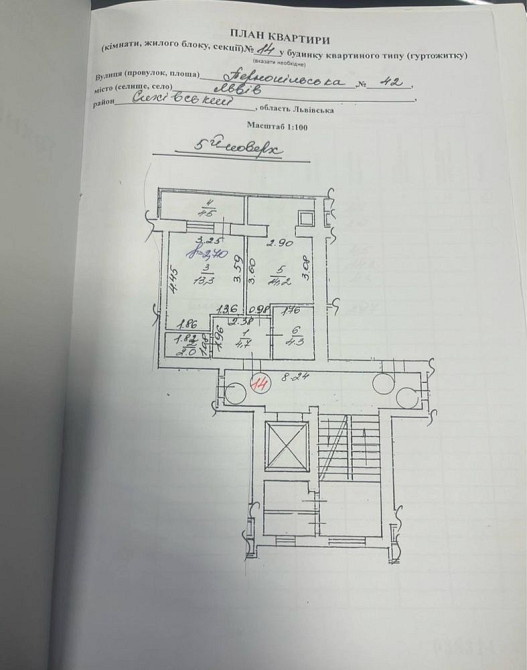 ПЛАН КВАРТИРИ
(кімнати, жилого блоку, секції)№ 14 у будинку квартиного типу (гуртожитку)
(вказати необхідне)
Вулиця (провулок, площа) Тернопільська, № 42,
місто (селище, село) Львів,
район Сихівський, область Львівська
Масштаб 1:100
5й поверх
4
4.5
3.25
h=2,70
2.90
4.45
3
13,3
3.59
3.60
5
3.08
1.36
0.98
1.76
1.86
2.38
1.82
2
2.0
1.08
1.96
1
4,7
6
4.3
14
8.24